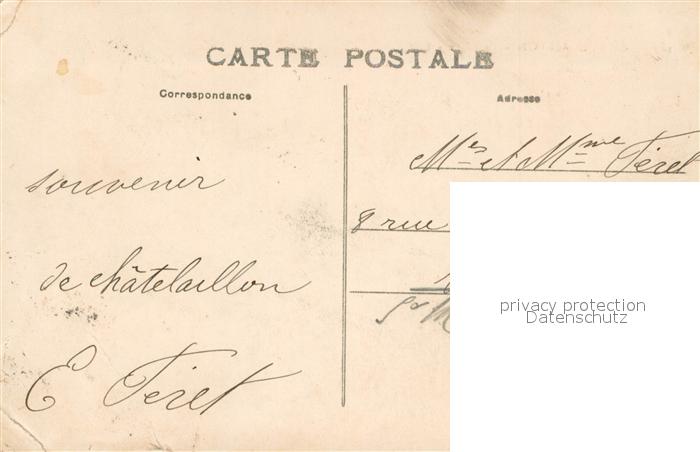 CARTE POSTALE
Correspondance
Adresse
souvenir
de châtelaillon
E Féret
Mr et Mme Féret
8 rue
privacy protection
Datenschutz